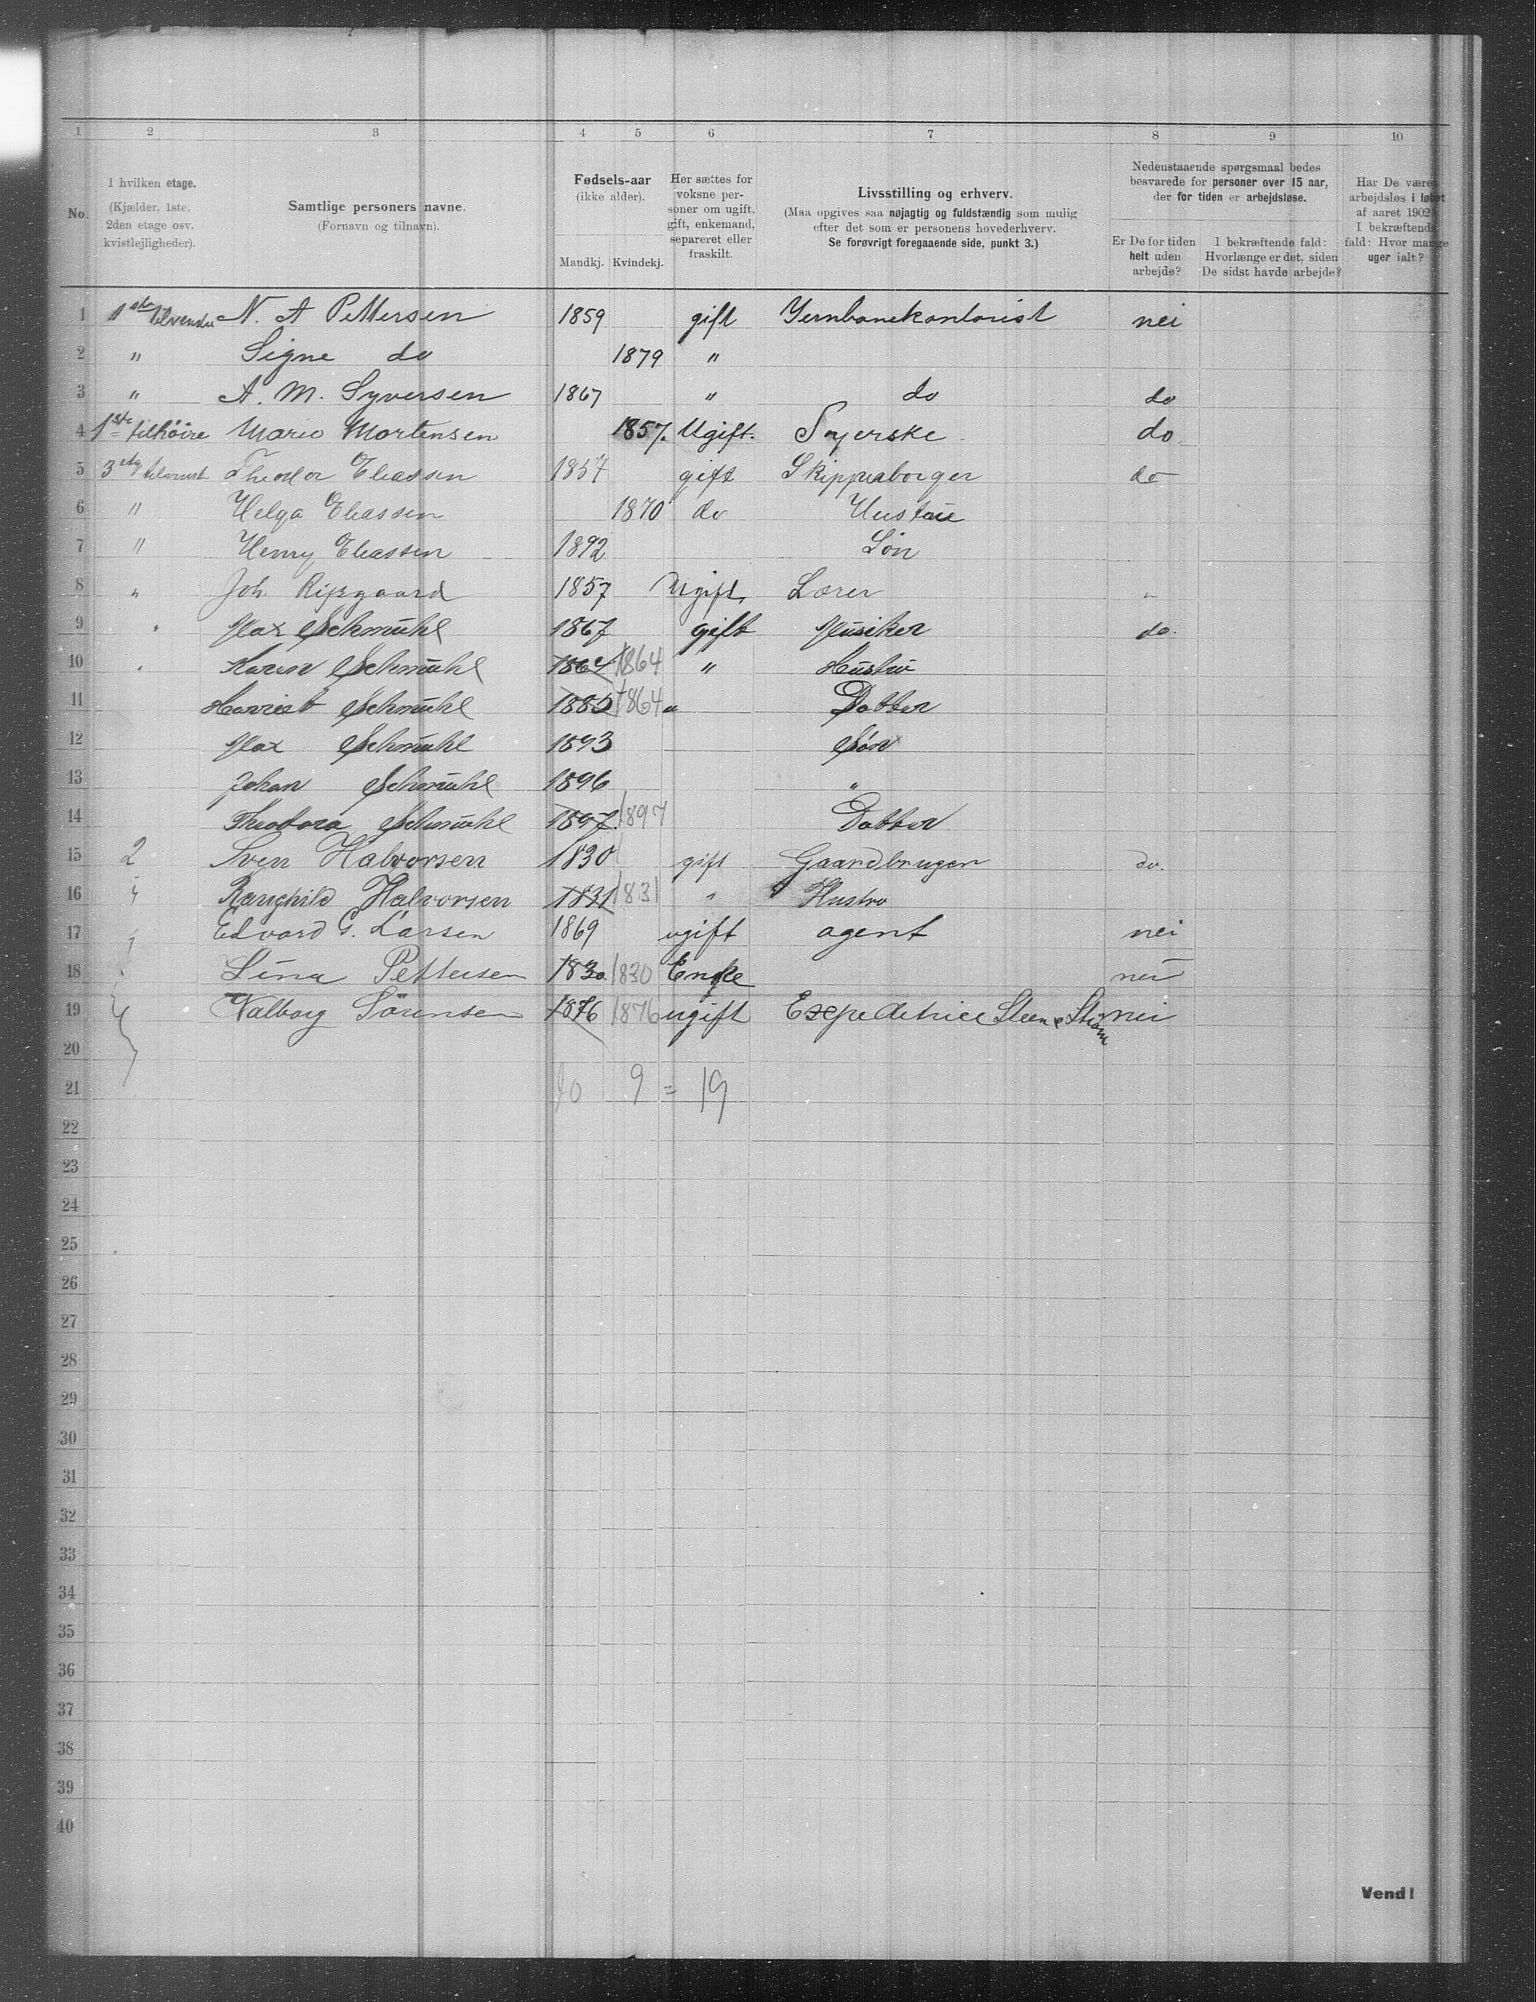 1 2 3 4 5 6 7 8 9 10
No.
I hvilken etage.
(Kjælder, 1ste. 2den etage osv. kvistlejligheder).
Samtlige personers navne.
(Fornavn og tilnavn).
Fødsels-aar
(ikke alder).
Mandkj. Kvindekj.
Her sættes for voksne personer om ugift, gift, enkemand, separeret eller fraskilt.
Livsstilling og erhverv.
(Maa opgives saa nøjagtig og fuldstændig som mulig
efter det som er personens hovederhverv.
Se forøvrigt foregaaende side, punkt 3.)
Nedenstaaende spørgsmaal bedes
besvarede for personer over 15 aar,
der for tiden er arbejdsløse.
Er De for tiden helt uden arbejde?
I bekræftende fald: Hvorlænge er det, siden De sidst havde arbejde?
Har De været arbejdsløs i løbet af aaret 1902? I bekræftende fald: Hvor mange uger ialt?
1 1ste tilvenstre N. A Pettersen 1859 gift Jernbanekontorist nei
2 " Signe do 1879 "
3 " A. M. Syversen 1867 " do do
4 1ste tilhöire Marie Mortensen 1857. Ugift. Syerske do
5 3 etg Theodor Eliassen 1857 gift Skipperborger do
6 " Helga Eliassen 1870 do Hustru
7 " Henry Eliassen 1892 Søn
8 " Joh. 1857 Ugift. Lærer "
9 " Max Schmühl 1867 gift Musiker do.
10 " Karen Schmühl 1864 1864 " Hustrü
11 Harriet Schmühl 1864 " Datter
12 Max Schmühl 1893 Søn
13 Johan Schmühl 1896 "
14 Theodora Schmühl 1897. 1897 Datter
15 2 Sven Halvorsen 1830 gift Gaardbruger do.
16 " Ranghild Halvorsen 1831 1831 " Hustro
17 Edvard G. Larsen 1869 ugift agent nei
18 Lina Pettersen 1830 1830 Enke nei
19 Valborg Sörensen 1876 1876 ugift Expeditrice Steen & Strøm nei
20
21 10 9 = 19
22
23
24
25
26
27
28
29
30
31
32
33
34
35
36
37
38
39
40
Vend!